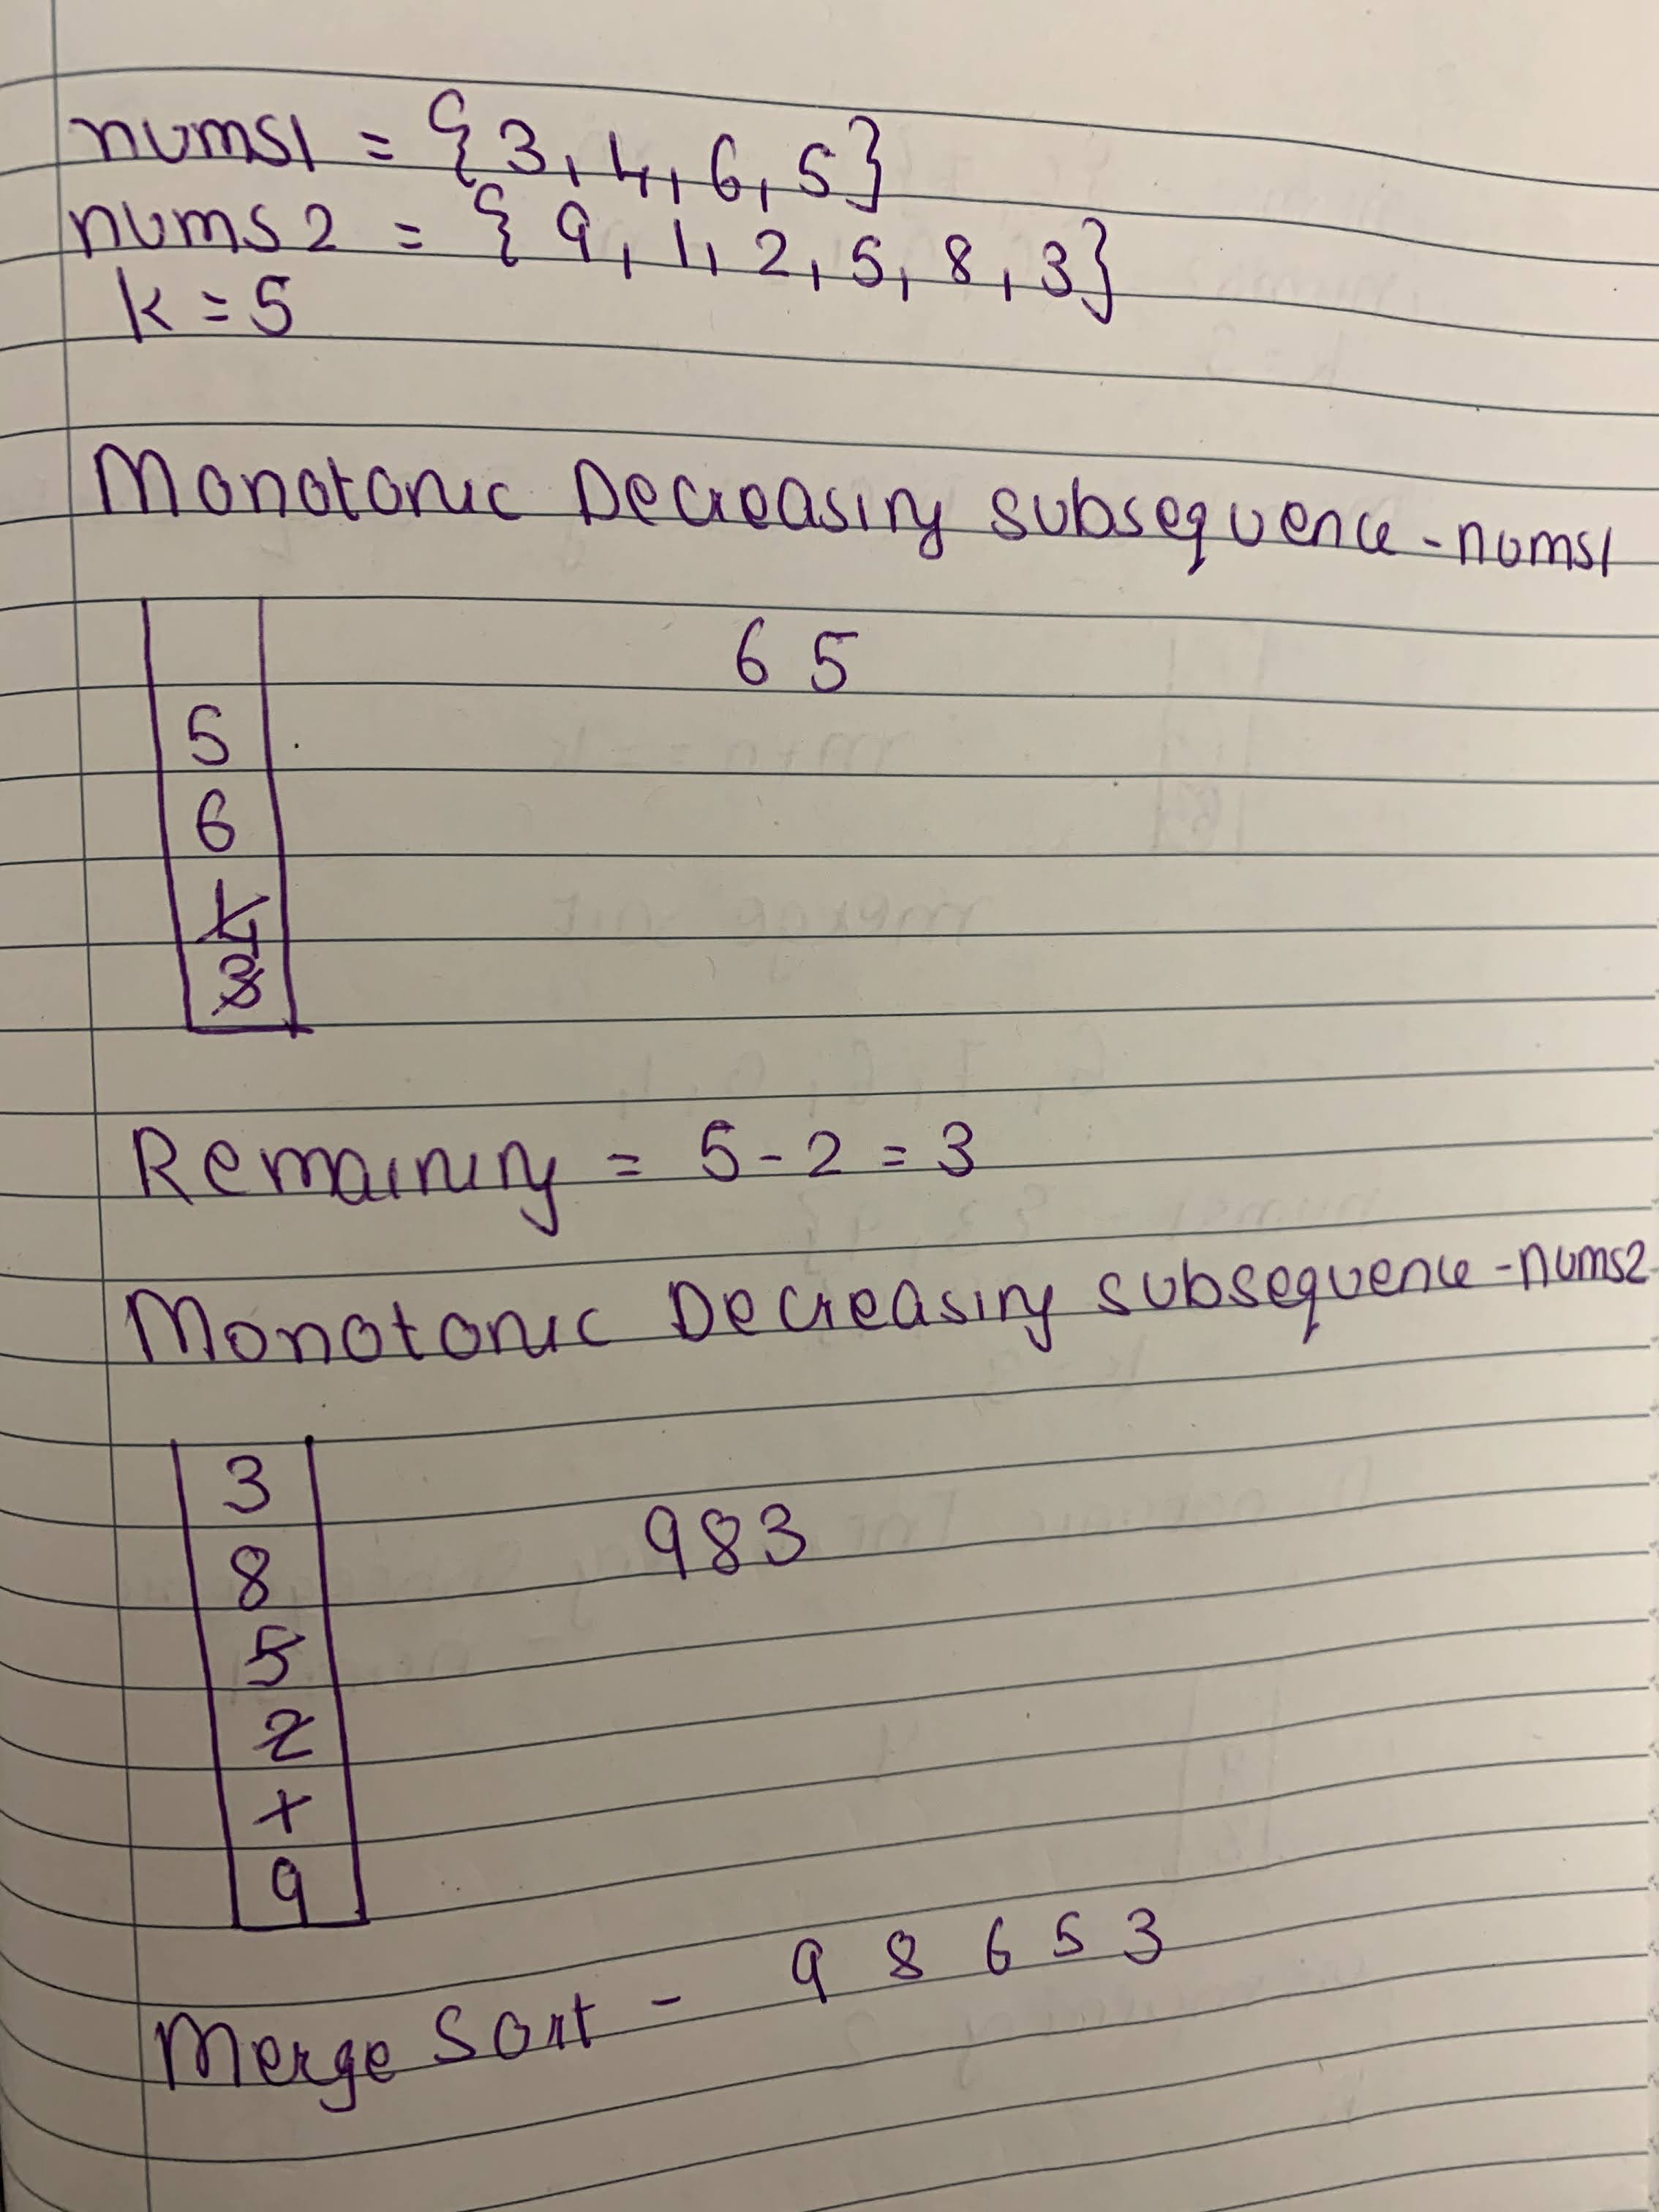 nums1 = {3, 4, 6, 5}
nums2 = {9, 1, 2, 5, 8, 3}
k = 5
Monotonic Decreasing subsequence - nums1
6 5
5
6
4
3
Remaining = 5 - 2 = 3
Monotonic Decreasing subsequence - nums2
3
983
8
5
2
1
9
Merge Sort - 9 8 6 5 3